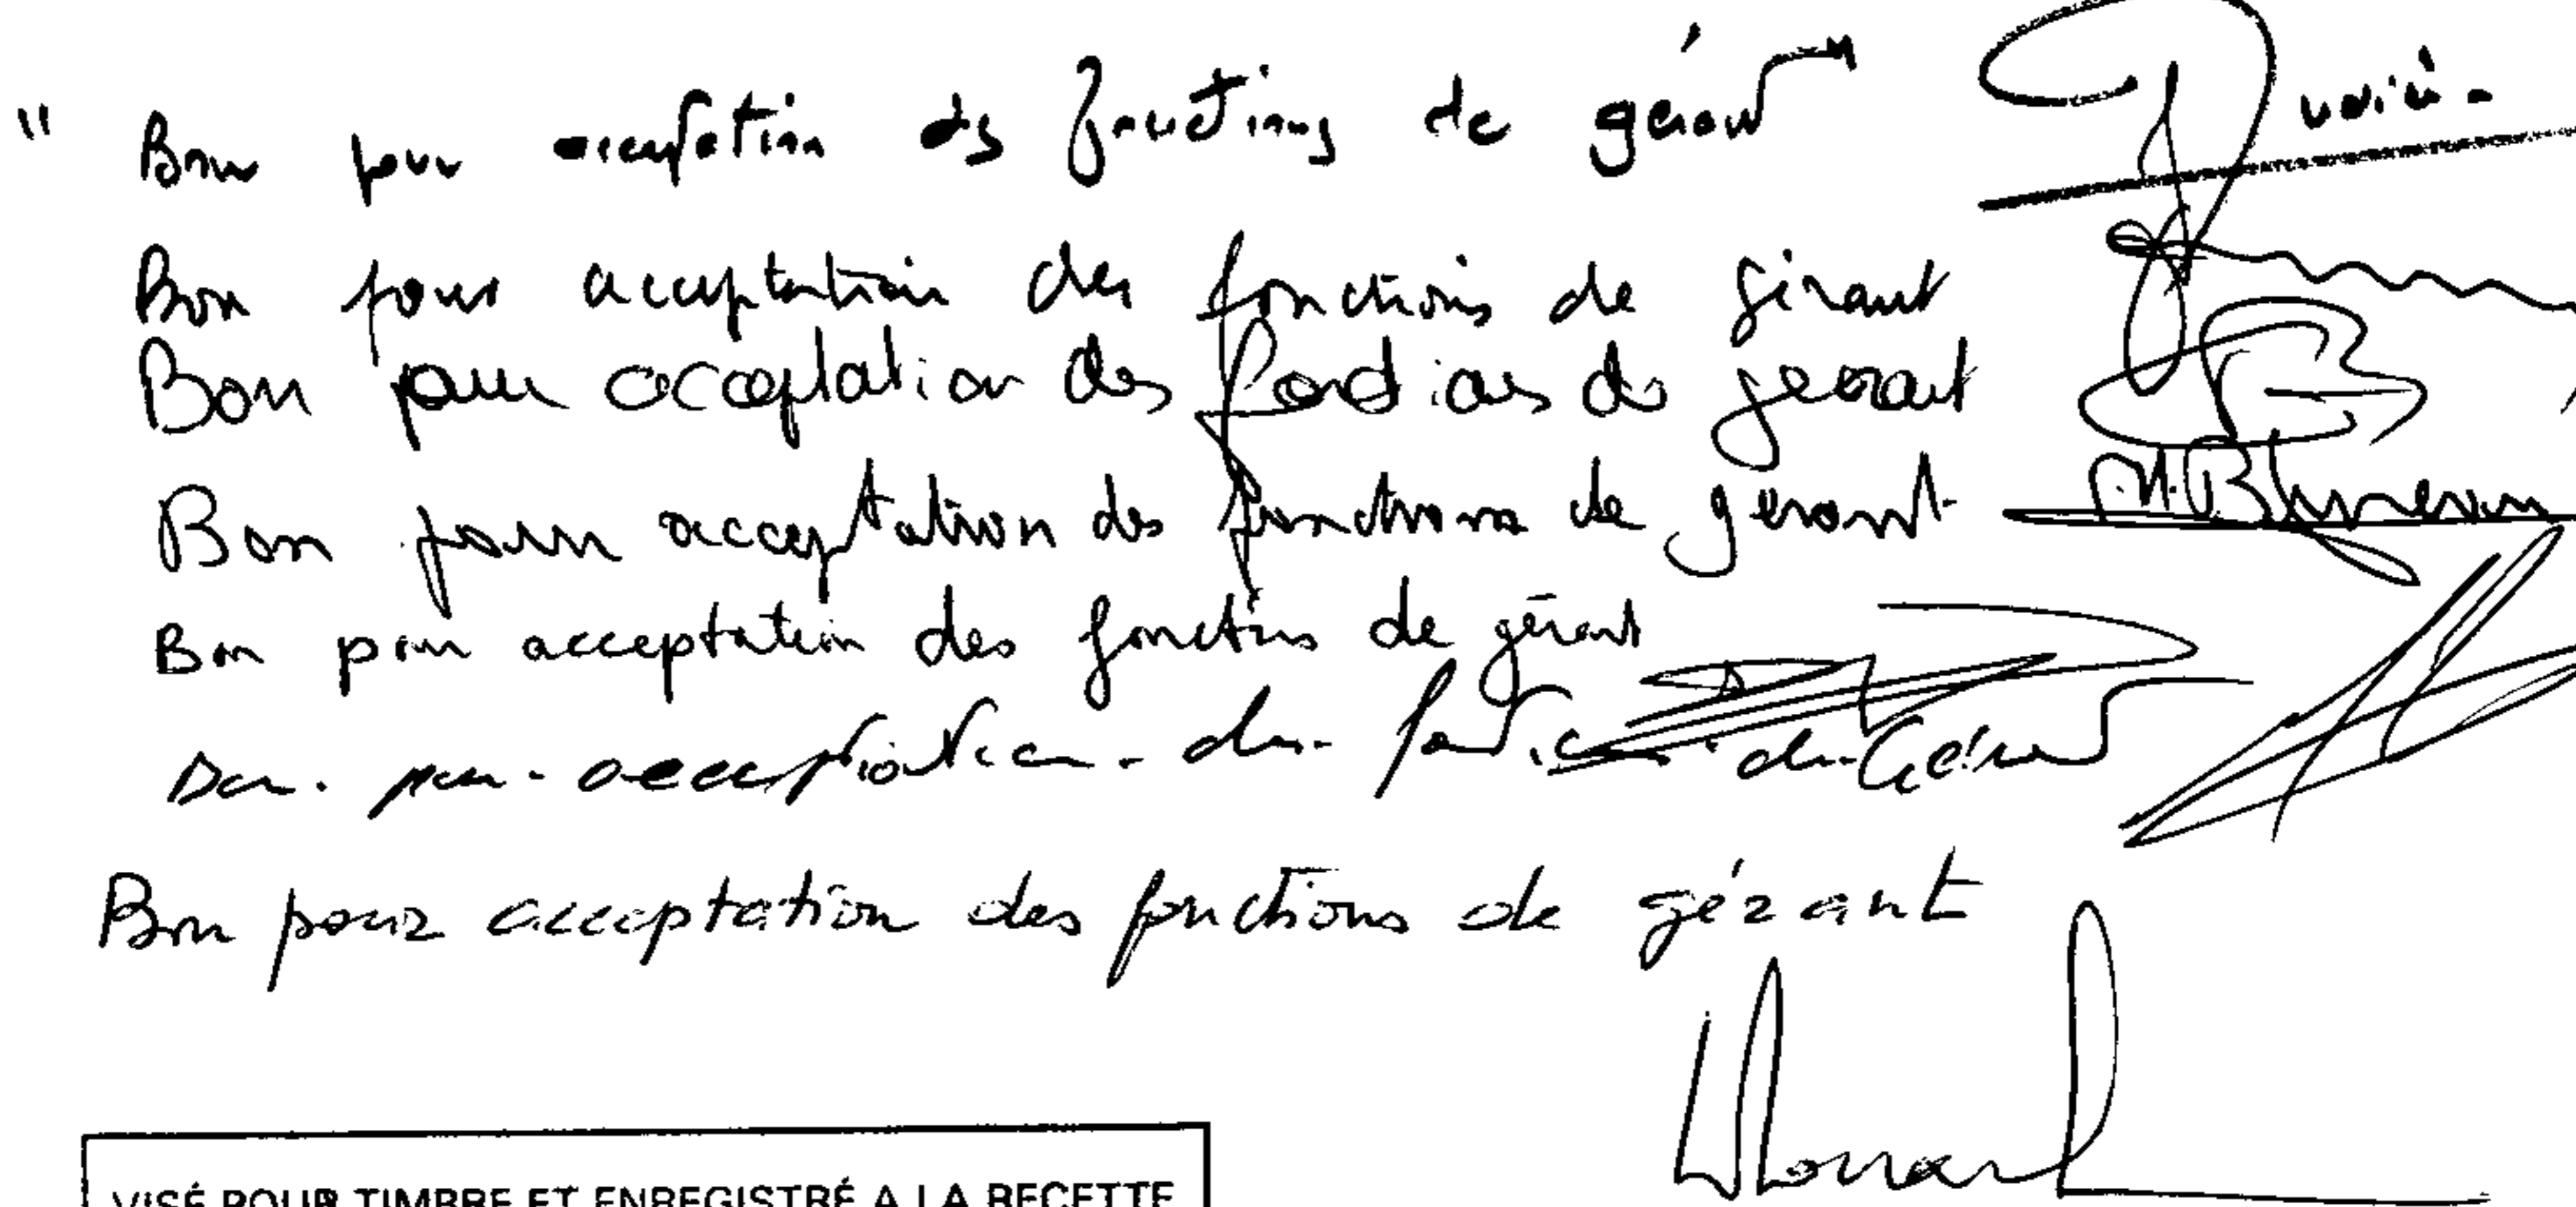 " Bon pour acceptation des fonctions de gérant "
Bon pour acceptation des fonctions de gérant
Bon pour acceptation des fonctions de gerant
Bon pour acceptation des fonctions de gerant
Bon pour acceptation des fonctions de gérant
Bon pour acceptation des fonctions de Gérant
Bon pour acceptation des fonctions de gérant
VISÉ POUR TIMBRE ET ENREGISTRÉ A LA RECETTE